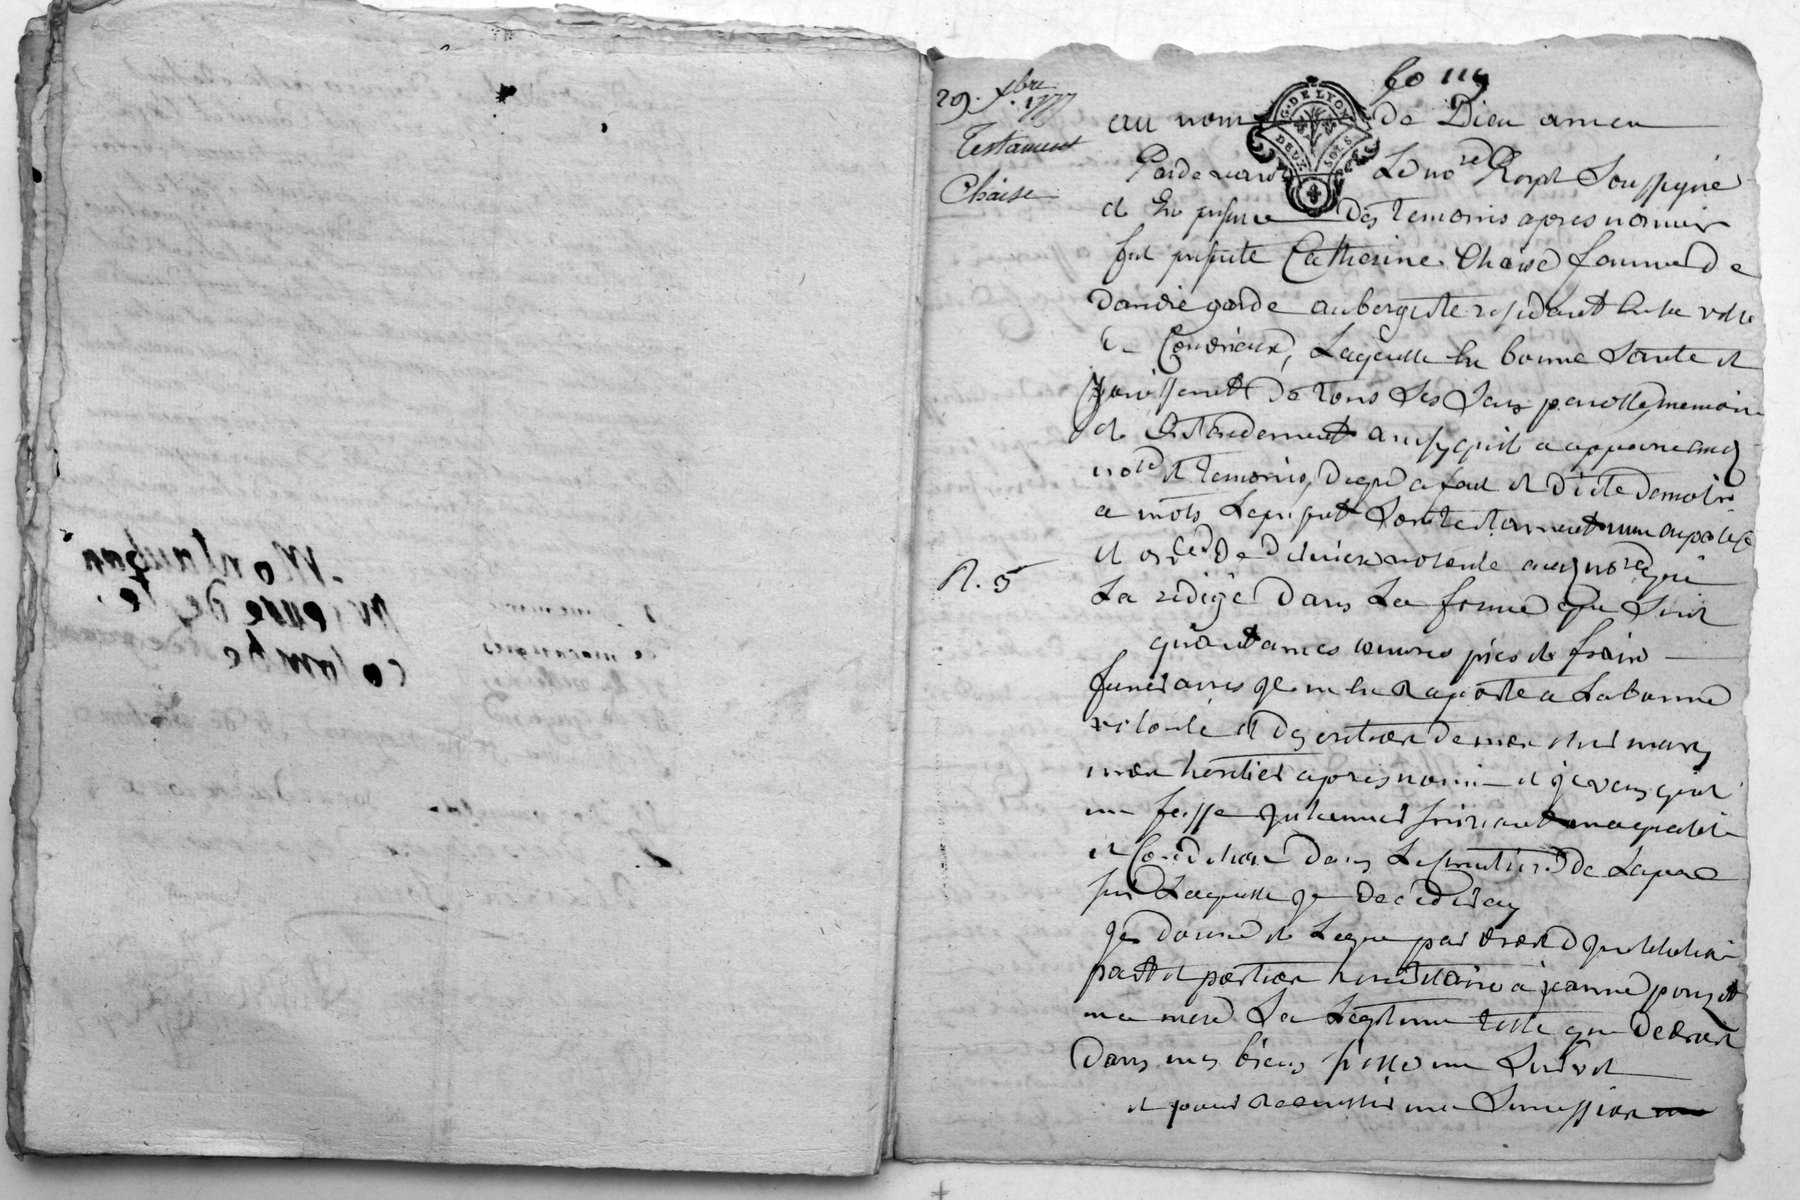 Montauban
Vienne de Ste
colombe
29. xbre 1777
Testament
Chaise
R. 5
fo 119
G. DE LYON
DEUX SOLS
au nom de Dieu amen
Pardevant Le nore Royal Soussigné
et En presence des temoins apres nommés
fut presente Catherine Chaise femme de
garde aubergiste residant En la ville
de Condrieux, Laquelle En bonne Santé et
Jouissant de tous Ses Sens parolle, memoire
et Entendement ainsy quil a apparu auxd
nore et temoins, degré a fait et dicté de mot
a mots Le present Son testament nuncupatif
et ordce de derniere volonté aud nore qui
La redigé dans La forme que Suit
quant a mes œuvres pies et frais
funeraires Je m'en raporte a La bonne
volonté et discretion de mon cher mary
mon heritier apres nommé et je veux quil
me fasse inhumer suivant ma qualité
et Condition dans Le cimetiere de La paroisse
sur Laquelle je decederay
Je donne et Legue par droit d'institution
part et portion hereditaire a jeanne pouzet
ma mere La Legitime telle que de droit
dans mes biens si elle me Survit
et pour recueillir ma Succession